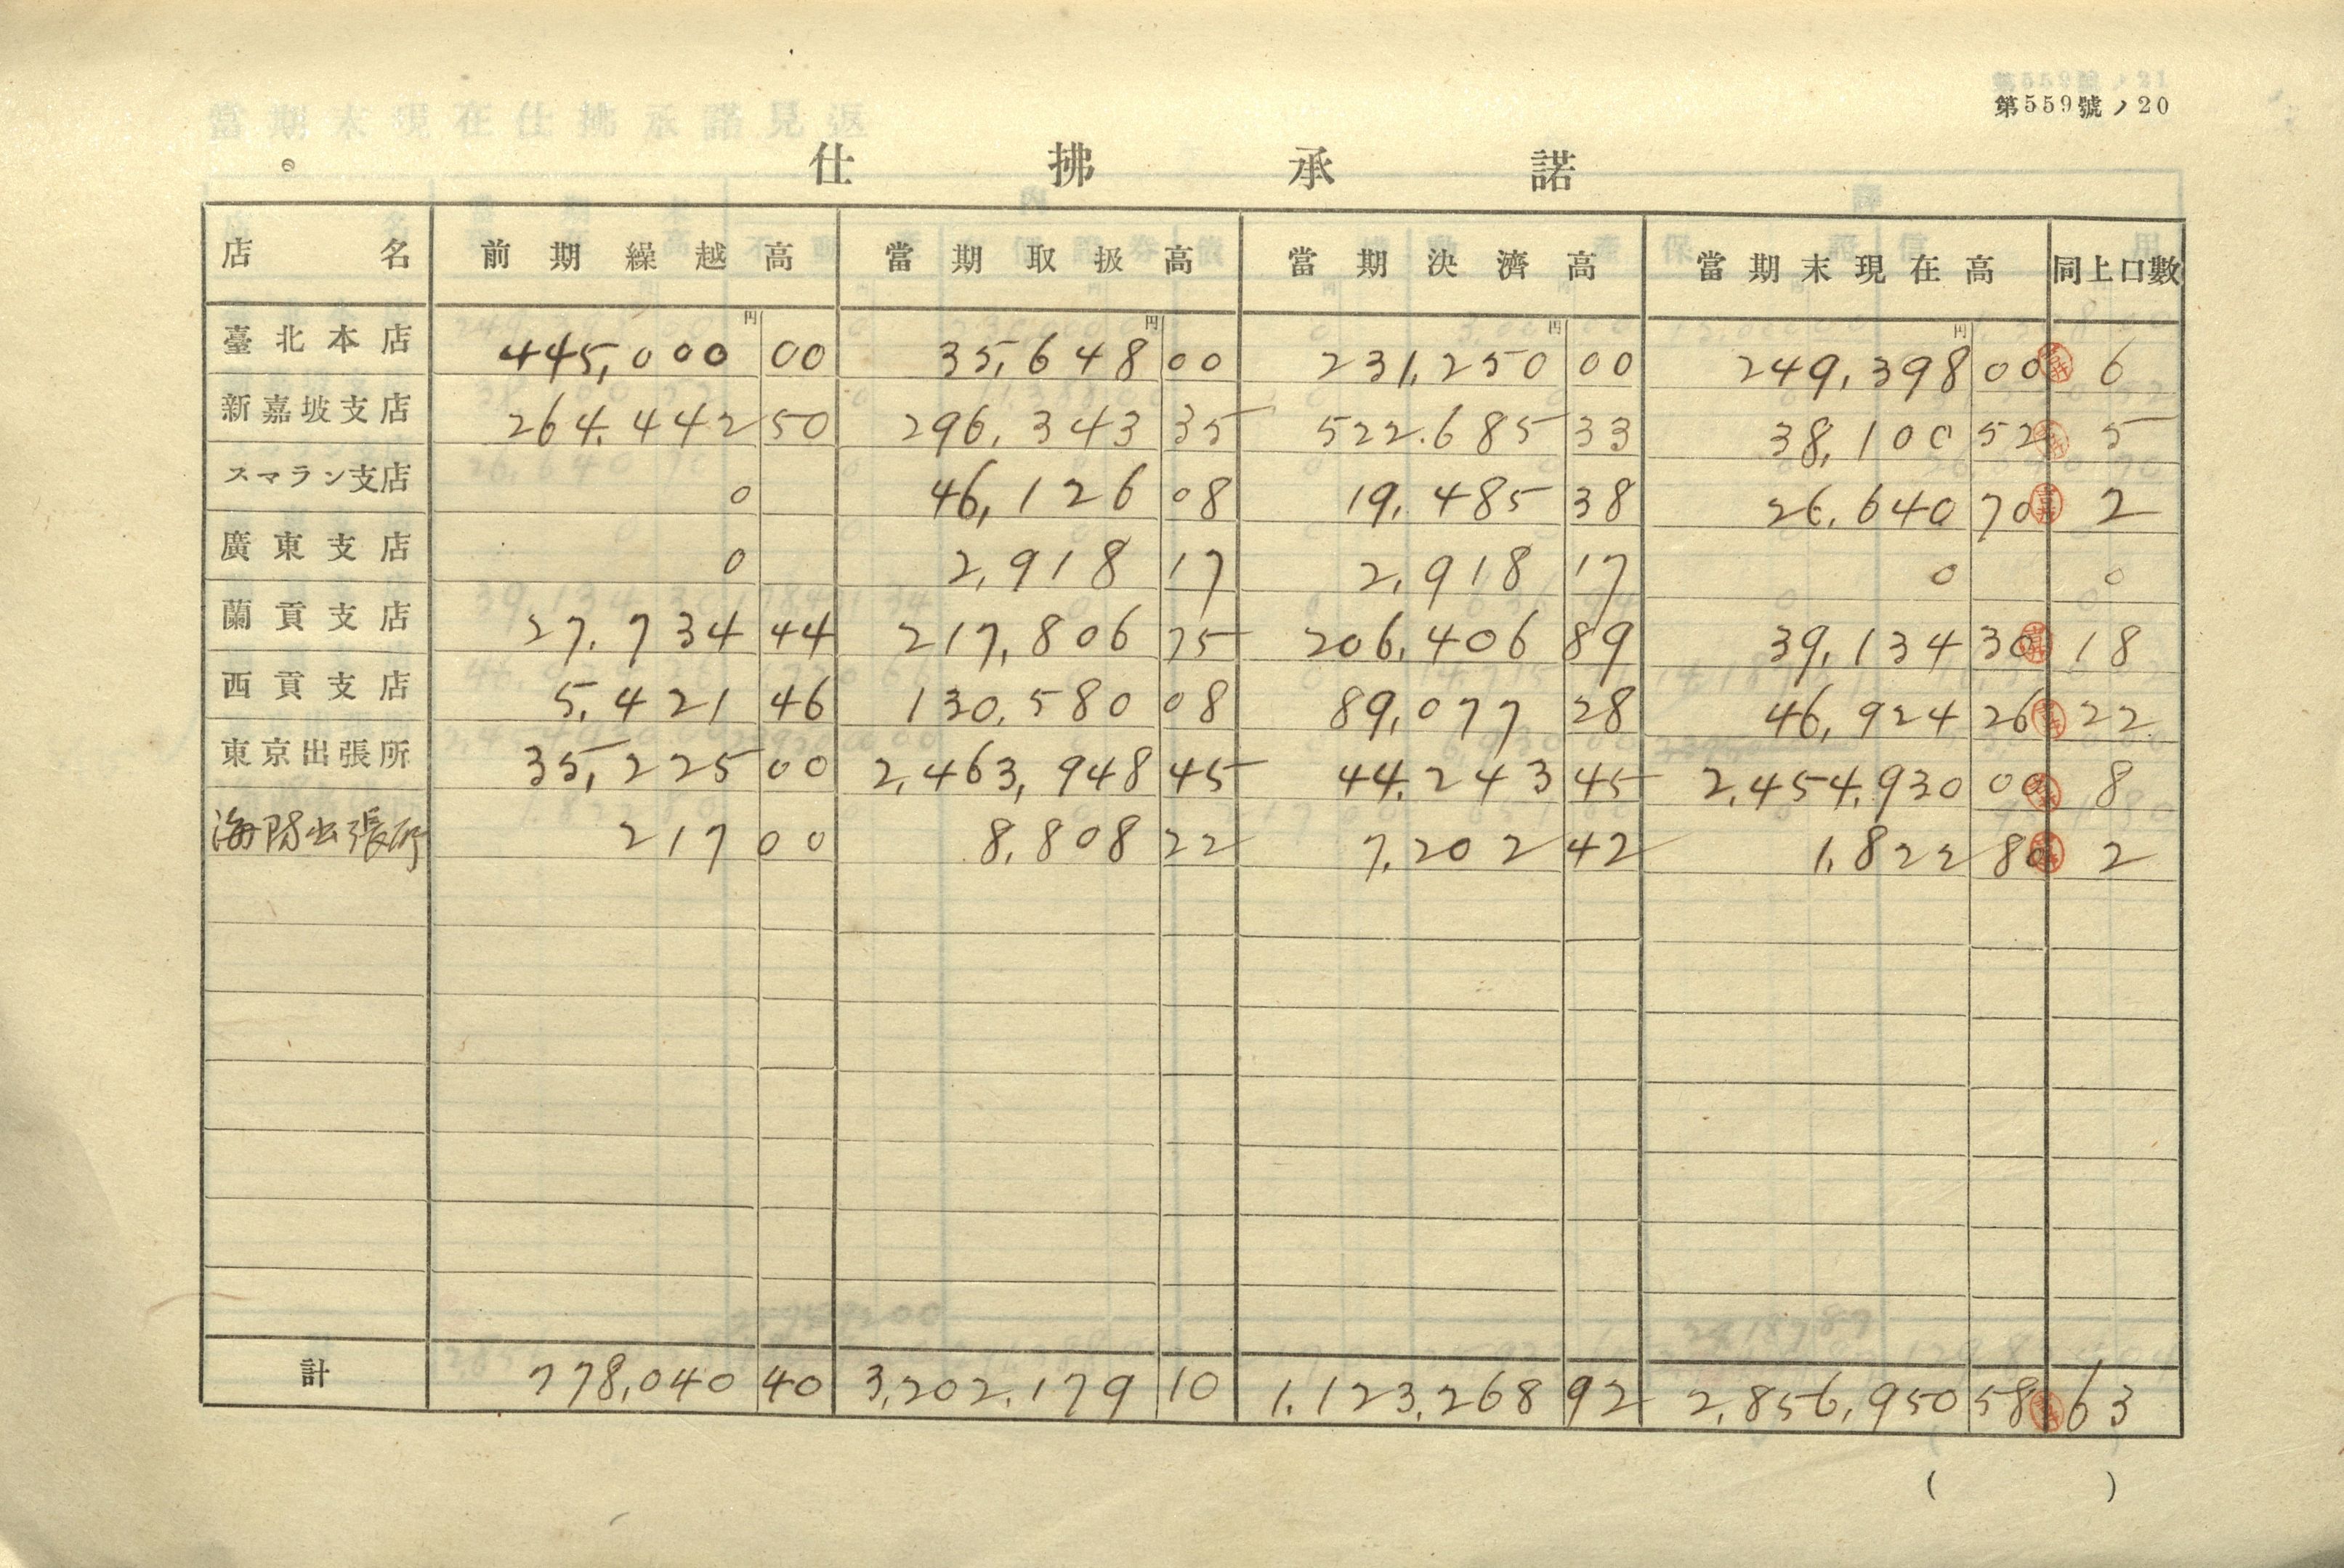 第559號ノ20
仕拂承諾
店名 前期繰越高 當期取扱高 當期決濟高 當期末現在高 同上口數
円 円 円 円
臺北本店 445,000 00 35,648 00 231,250 00 249,398 00 6
新嘉坡支店 264,442 50 296,343 35 522.685 33 38,100 52 5
スマラン支店 0 46,126 08 19,485 38 26,640 70 2
廣東支店 0 2,918 17 2,918 17 0 0
蘭貢支店 27,734 44 217,806 75 206,406 89 39,134 30 18
西貢支店 5,421 46 130,580 08 89,077 28 46,924 26 22
東京出張所 35,225 00 2,463,948 45 44,243 45 2,454,930 00 8
海防出張所 217 00 8,808 22 7,202 42 1,822 80 2
計 778,040 40 3,202,179 10 1,123,268 92 2,856,950 58 63
( )